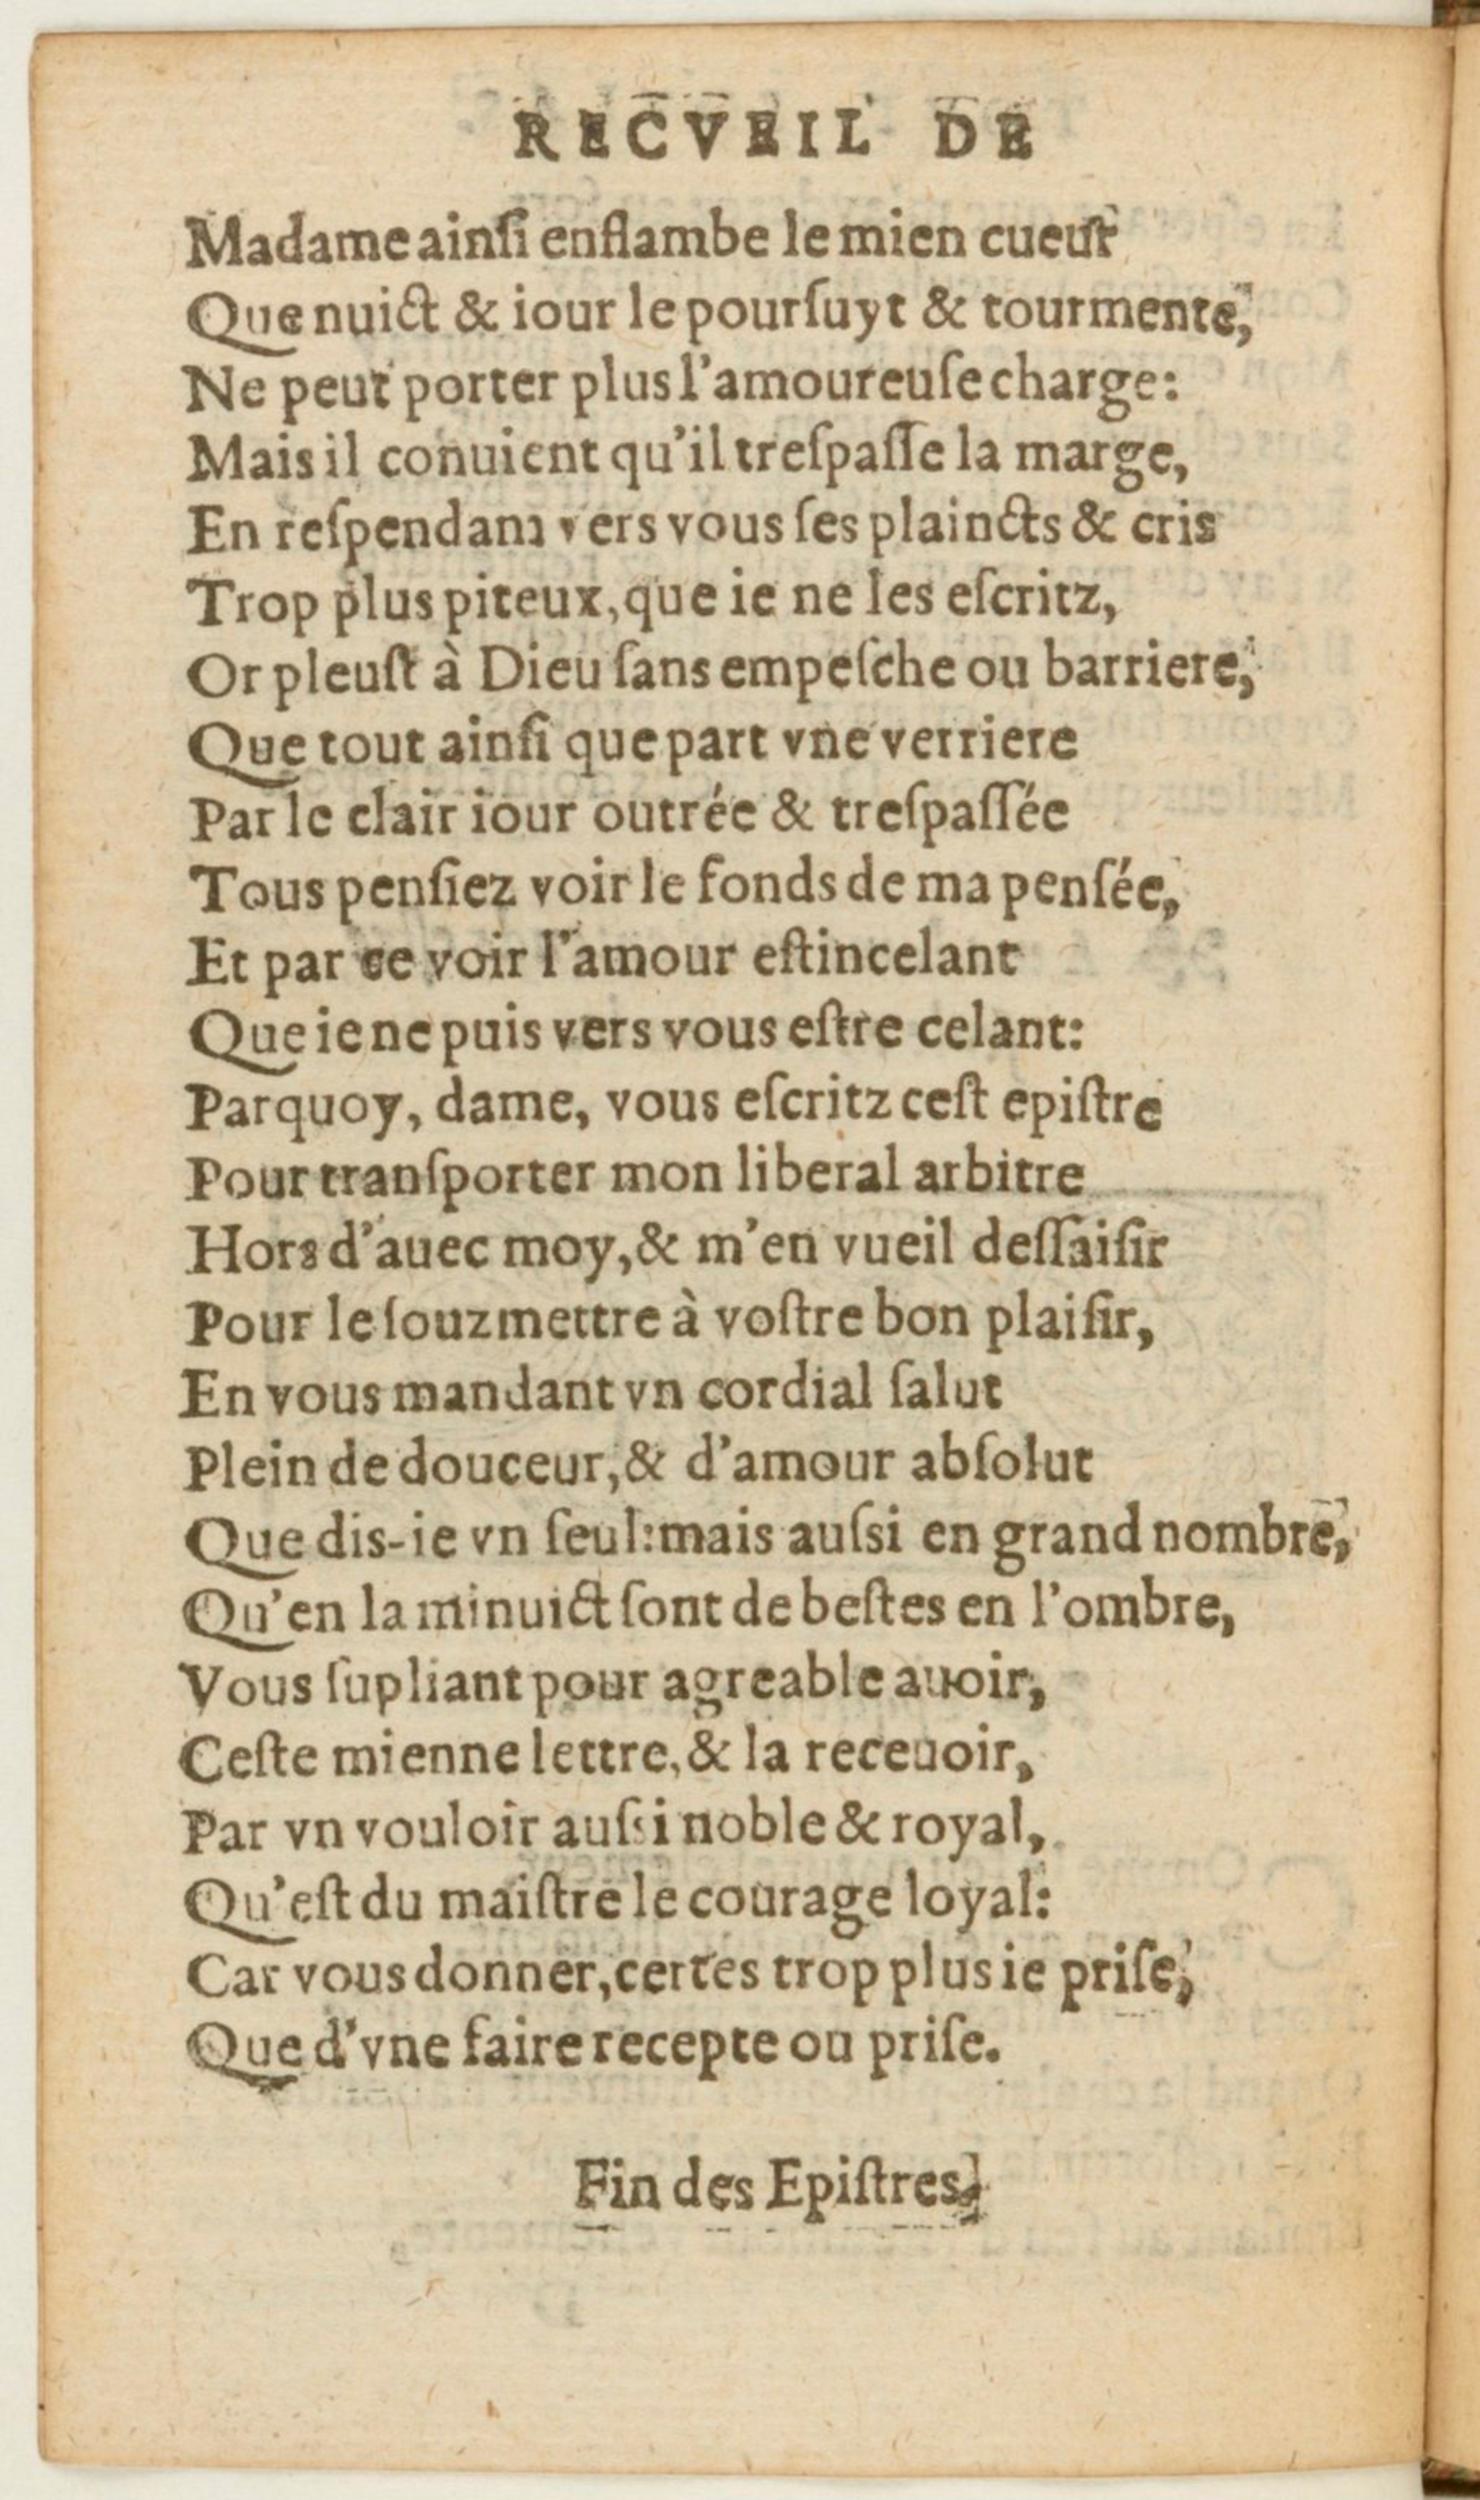 RECVEIL DE
Madame ainſi enflambe le mien cueur
Que nuict & iour le pourſuyt & tourmente,
Ne peut porter plus l'amoureuſe charge:
Mais il conuient qu'il treſpaſſe la marge,
En reſpendant vers vous ſes plaincts & cris
Trop plus piteux, que ie ne les eſcritz,
Or pleuſt à Dieu ſans empeſche ou barriere,
Que tout ainſi que part vne verriere
Par le clair iour outrée & treſpaſſée
Tous penſiez voir le fonds de ma penſée,
Et par ce voir l'amour eſtincelant
Que ie ne puis vers vous eſtre celant:
Parquoy, dame, vous eſcritz ceſt epiſtre
Pour tranſporter mon liberal arbitre
Hors d'auec moy, & m'en vueil deſſaiſir
Pour le ſouzmettre à voſtre bon plaiſir,
En vous mandant vn cordial ſalut
Plein de douceur, & d'amour abſolut
Que dis-ie vn ſeul: mais auſsi en grand nombre,
Qu'en la minuict ſont de beſtes en l'ombre,
Vous ſupliant pour agreable auoir,
Ceſte mienne lettre, & la receuoir,
Par vn vouloir auſsi noble & royal,
Qu'eſt du maiſtre le courage loyal:
Car vous donner, certes trop plus ie priſe,
Que d'vne faire recepte ou priſe.
Fin des Epiſtres.